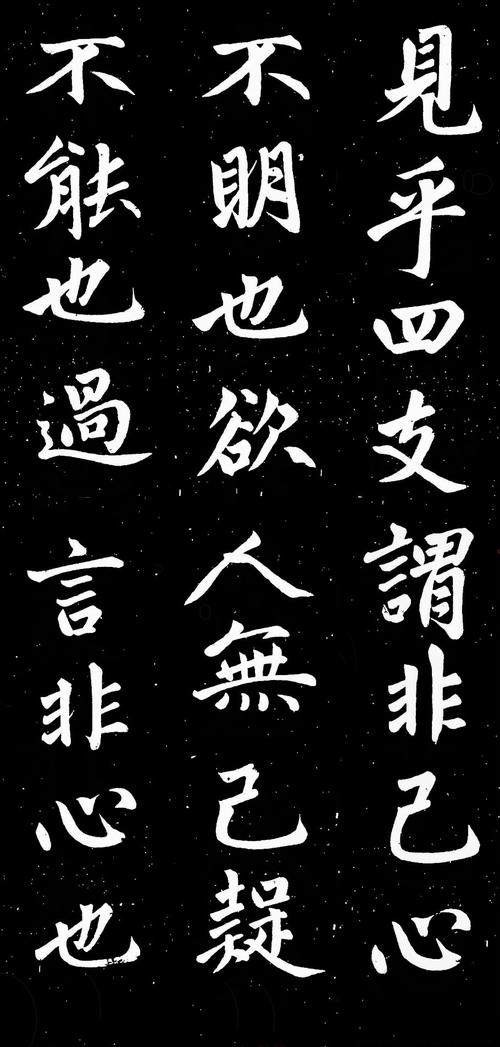 見乎四支謂非己心
不明也欲人無己疑
不能也過言非心也